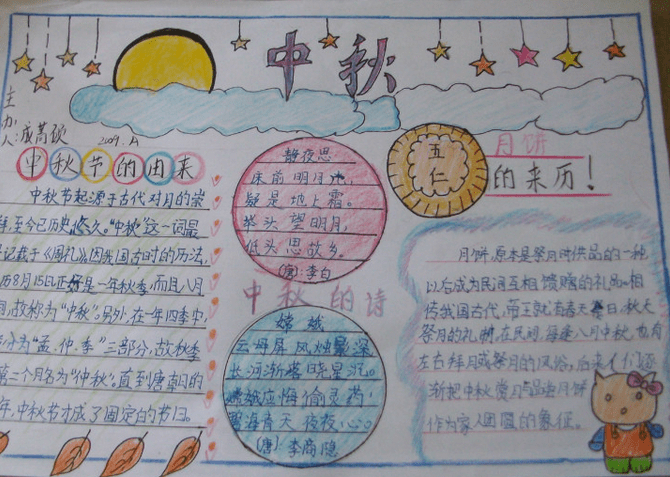 中秋
主办人:成
2009.
中秋节的由来
中秋节起源于古代对月的崇
拜,至今已历史悠久。"中秋"这一词最
记载于《周礼》。因我国古时的历法,
历8月15日正好是一年秋季,而且八月
间,故称为"中秋"。另外,在一年四季中,
分为"孟、仲、季"三部分,故秋季
第二个月名为"仲秋",直到唐朝的
年,中秋节才成了固定的节日。
静夜思
床前明月光,
疑是地上霜。
举头望明月,
低头思故乡。
(唐)李白
中秋的诗
嫦娥
云母屏风烛影深,
长河渐落晓星沉。
嫦娥应悔偷灵药,
碧海青天夜夜心。
(唐)李商隐
五仁
月饼
的来历!
月饼,原本是祭月时供品的一种
以后成为民间互相馈赠的礼品。相
传我国古代,帝王就有春天祭日,秋天
祭月的礼制,在民间,每逢八月中秋,也有
左右拜月或祭月的风俗,后来人们逐
渐把中秋赏月与品尝月饼
作为家人团圆的象征。